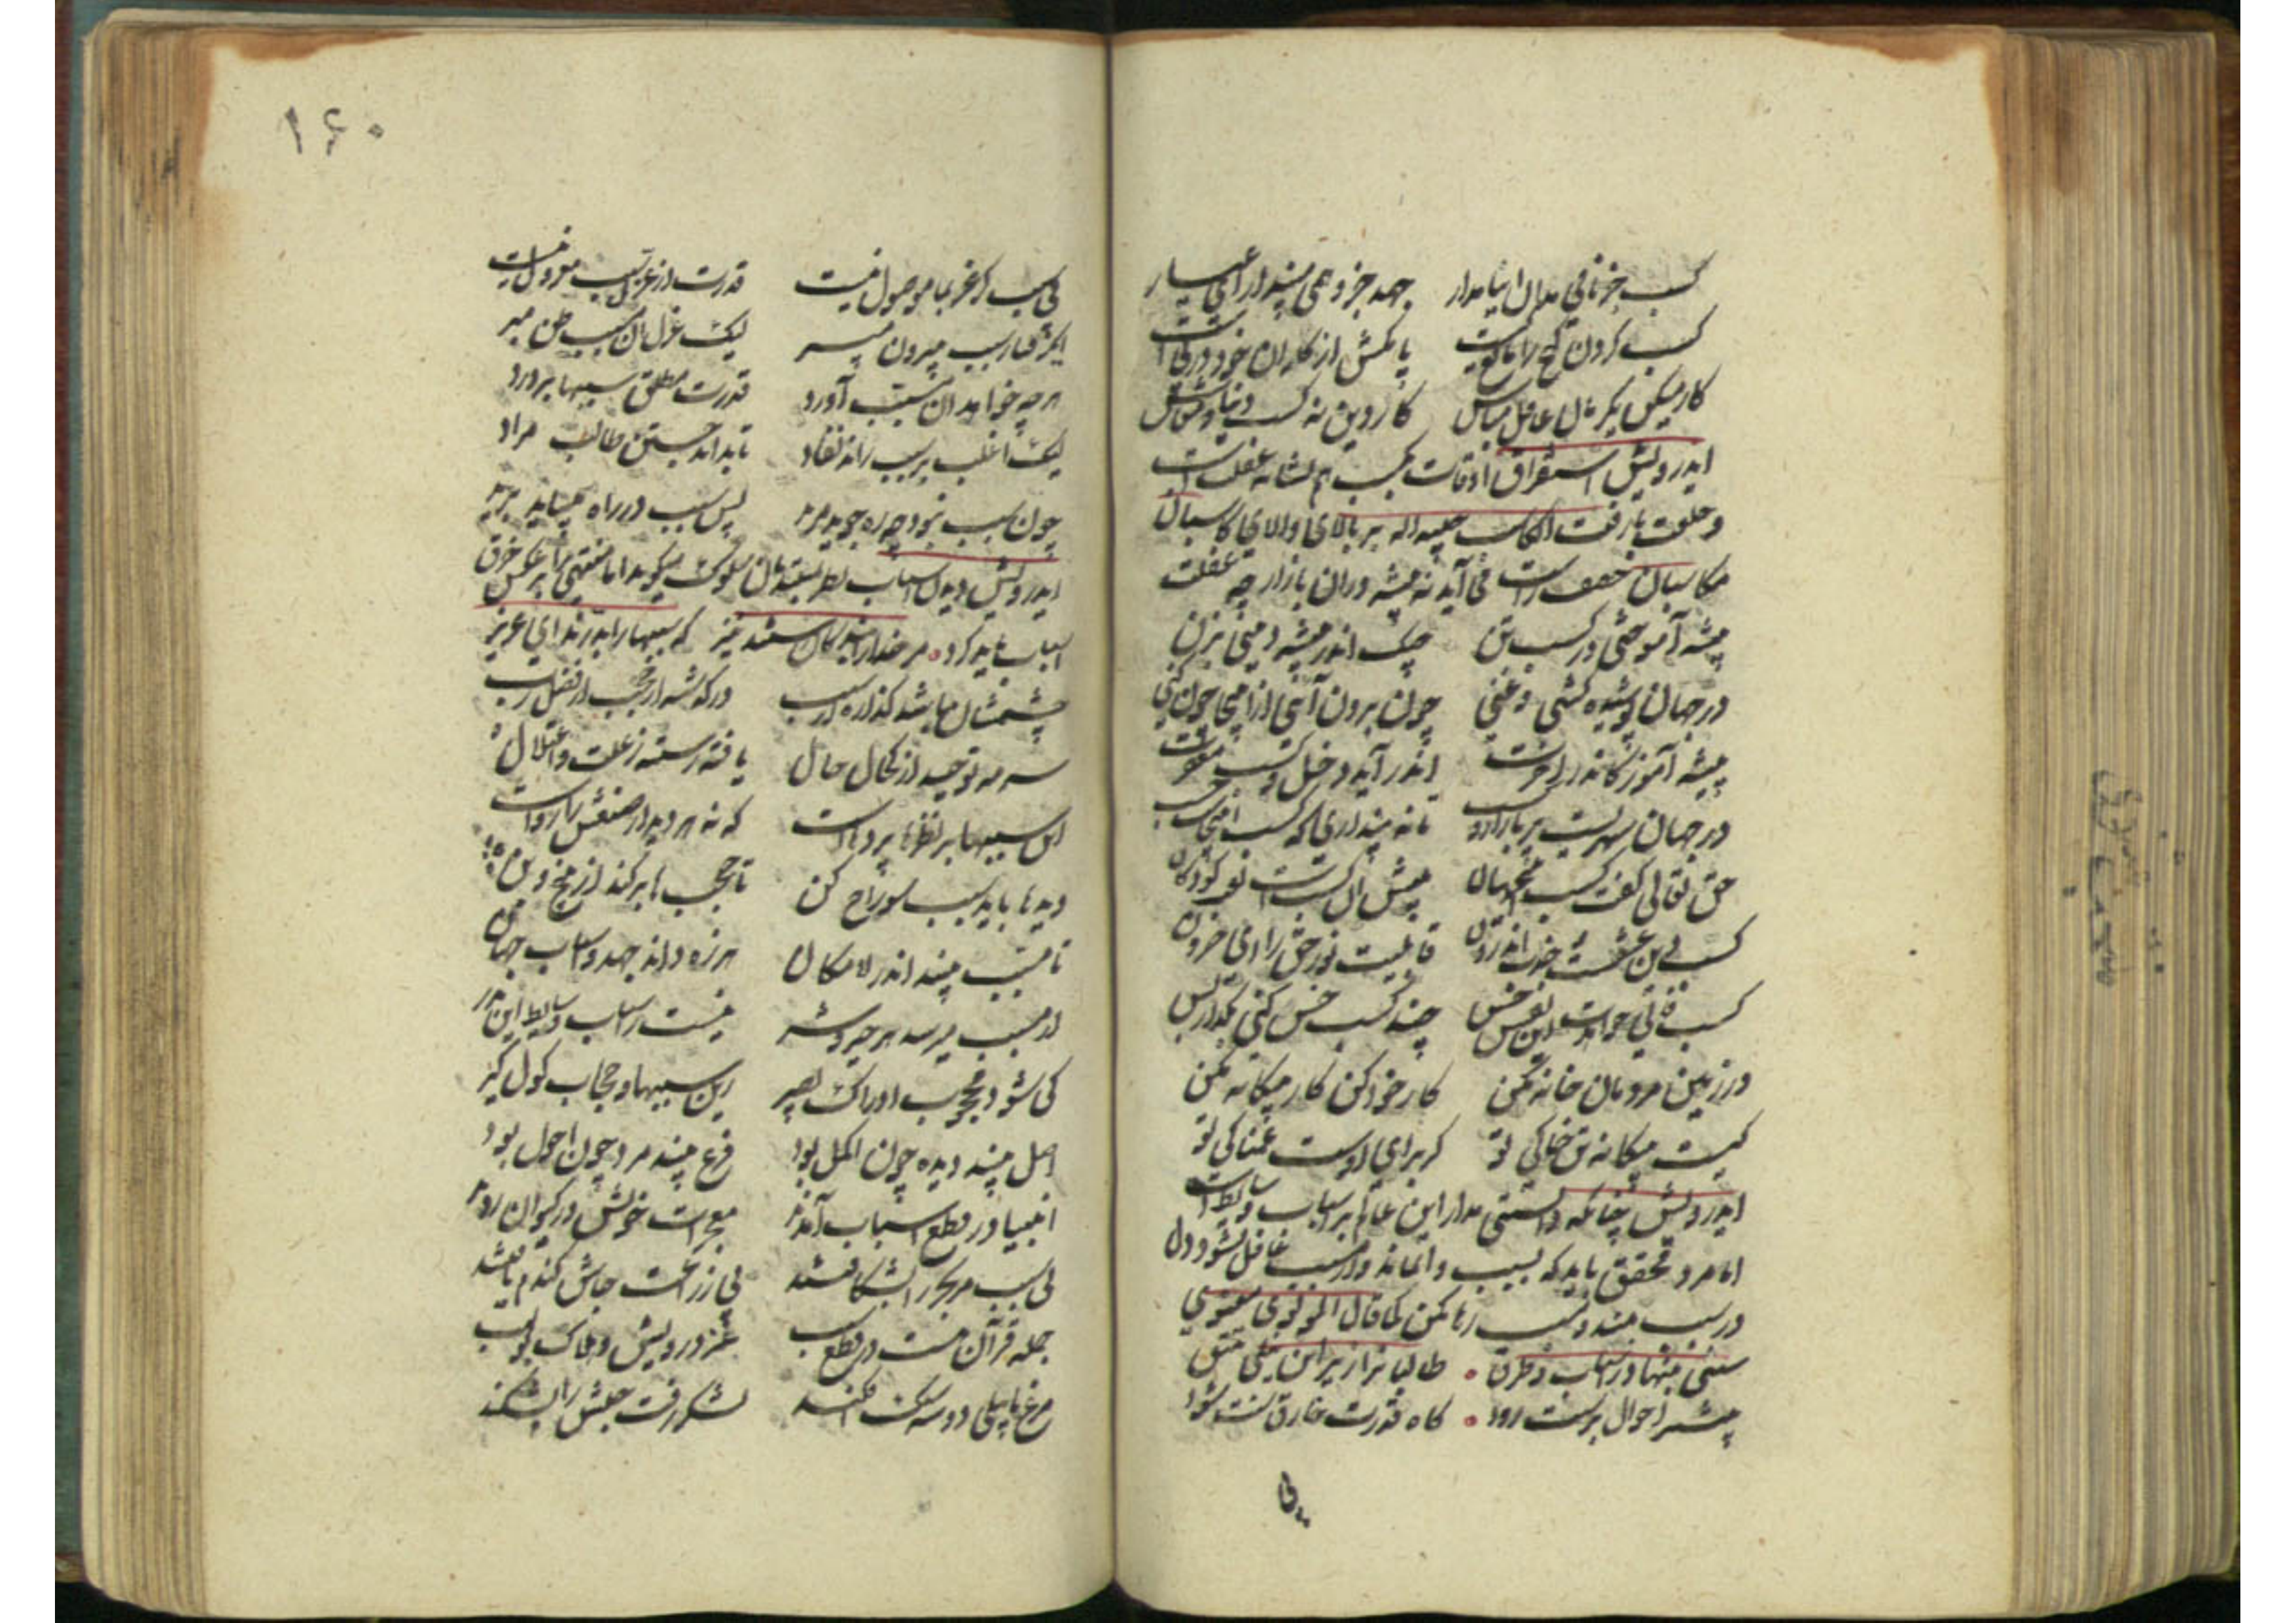 کسب جز نامی مدان ای نامدار جهد جز وهمی مپندار ای عیار
کسب کردن گنج را مانع کیست پا مکش از کار آن خود در پی است
کار میکن لیکن غافل مباش کار دین نه کسب دنیا و معاش
ایدرویش استغراق اوقات بکسب هم نشانه غفلت است
و حلاوت یا رفت الکاسب حبیب الله بر بالای والای کاسبان
مکاسبان خفف راست می آید نه پیشه وران بازارچه غفلت
پیشه آموختی در کسب تن چنگ اندر پیشه دینی بزن
در جهان پوشیده گشتی و غنی چون برون آئی از اینجا چون کنی
پیشه آموز کاندر آخرت اندر آید دخل کسب مغفرت
در جهان شهریست پر بازار و کسب تا نه پنداری که کسب اینجاست حسب
حق تعالی گفت کسب اینجهان پیش آن کسبست لعب کودکان
کسب دین عشقست جذب اندرون قابلیت نور حق را ای حرون
کسب فانی خواهدت این نفس خس چند کسب خس کنی بگذار بس
در زمین مردمان خانه مکن کار خود کن کار بیگانه مکن
کیست بیگانه تن خاکی تو کز برای اوست غمناکی تو
ایدرویش چنانکه دانستی مدار این عالم بر اسباب و سایط است
اما مرد محقق باید که بسبب وا نماند و از مسبب غافل نشود و دل
در سبب مبند و مسبب رها مکن کما قال المولوی معنوی
سنتی بنهاد و اسباب و طرق طالبان را زیر این نیلی تتق
بیشتر احوال بر سنت رود گاه قدرت خارق سنت شود
۱۶۰
بی سبب گر عز بما موصول نیست قدرت از عزل سبب معزول نیست
ای گرفتار سبب بیرون مپر لیک عزل آن مسبب ظن مبر
هر چه خواهد آن مسبب آورد قدرت مطلق سببها بر درد
لیک اغلب بر سبب راند نفاد تا بداند جستن طالب مراد
چون سبب نبود چه ره جوید مرید پس سبب در راه میباید پدید
ایدرویش دیدن اسباب نظر بمبتدیان سلوک میگوید اما منتهی را برعکس خرق
اسباب باید کرد مر خدا را بندگان هستند نیز که سببها را بدرند ای عزیز
چشمشان باشد گذاره از سبب در گذشته از حجب از فضل رب
سرمه توحید از کحال حال یافته رسته ز علت و اعتلال
این سببها بر نظرها پرده هاست که نه هر دیدار صنعش را سزاست
دیده ها باید سبب سوراخ کن تا حجب ها بر کند از بیخ و بن
تا مسبب بیند اندر لامکان هرزه داند جهد و اسباب جهان
از مسبب میرسد هر خیر و شر نیست اسباب و سایط این پدر
کی شود محجوب ادراک بصیر زین سببها و حجاب گول گیر
اصل بیند دیده چون اکمل بود فرع بیند مرد چون احول بود
انبیا در قطع اسباب آمدند معجزات خویش در کیوان زدند
بی سبب مر بحر را بشکافتند بی زراعت چاش گندم یافتند
جمله قرآن هست در قطع سبب عز درویش و هلاک بولهب
مرغ بابیلی دو سه سنگ افکند لشکر زفت حبش را بشکند
بی